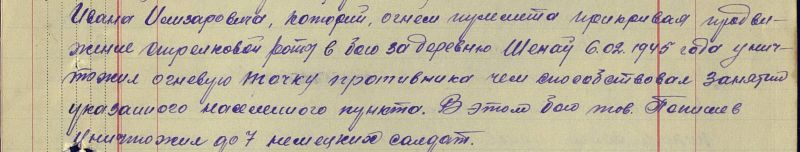 Ивана Елизаровича, который, огнем пулемета прикривая продви-
жение стрелковой роты в бою за деревню Шенау 6.02.1945 года унич-
тожил огневую точку противника чем способствовал занятию
указанного населенного пункта. В этом бою тов.
Уничтожил до 7 немецких солдат.